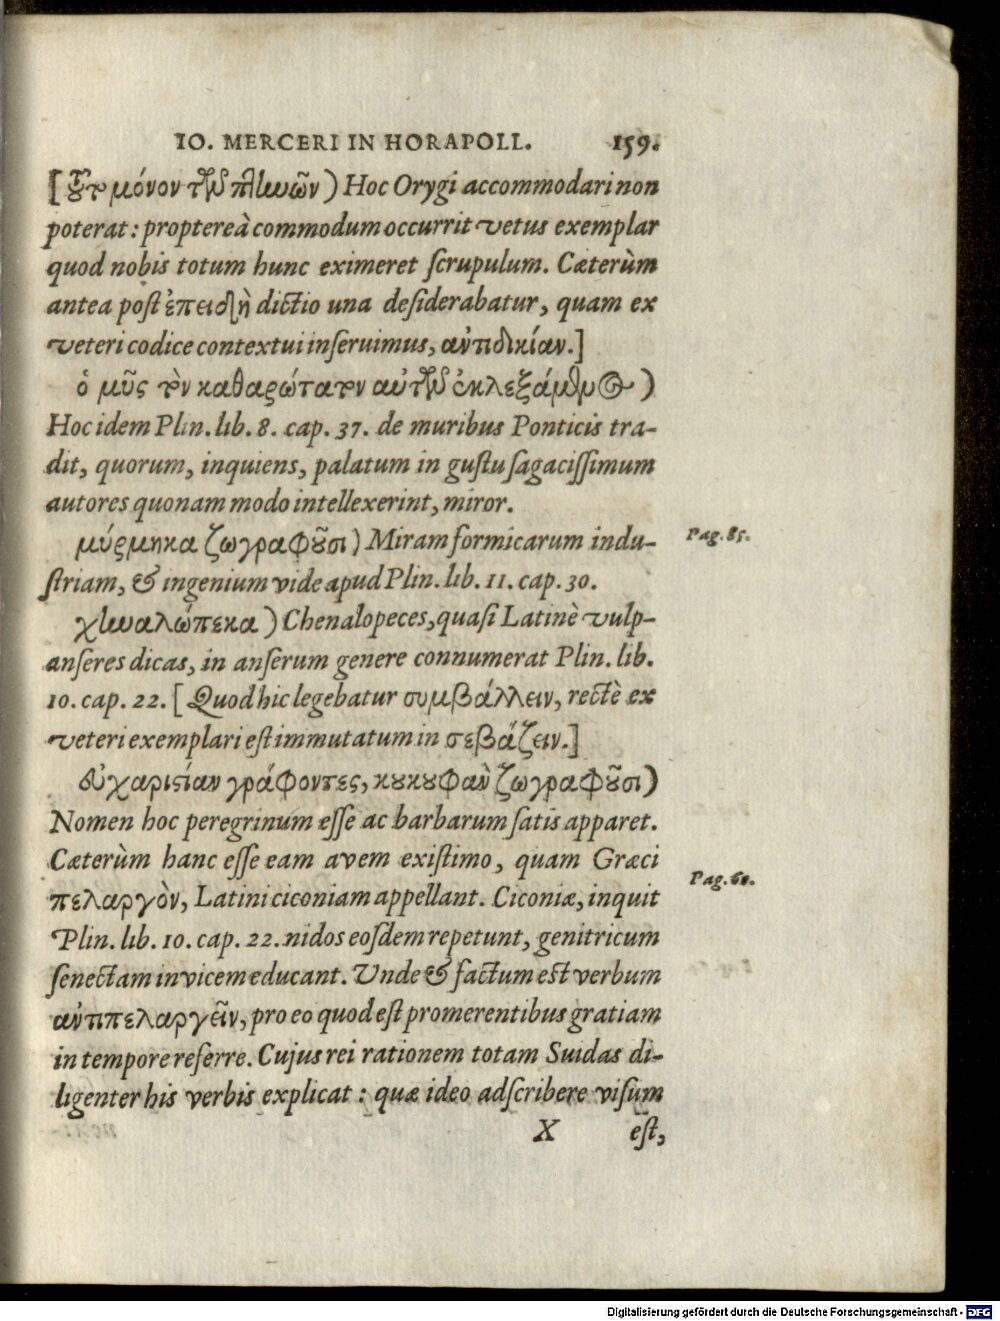 IO. MERCERI IN HORAPOLL. 159.
[τοῦτο μόνον τῶν πτηνῶν) Hoc Orygi accommodari non
poterat: propterea commodum occurrit vetus exemplar
quod nobis totum hunc eximeret scrupulum. Cæterùm
antea post ἐπειδὴ dictio una desiderabatur, quam ex
veteri codice contextui inseruimus, ἀντιδικίαν.]
ὁ μῦς τὸν καθαρώτατον αὐτῶν ἐκλεξάμενος)
Hoc idem Plin. lib. 8. cap. 37. de muribus Ponticis tra-
dit, quorum, inquiens, palatum in gustu sagacissimum
autores quonam modo intellexerint, miror.
μύρμηκα ζωγραφοῦσι) Miram formicarum indu-
Pag. 85.
striam, & ingenium vide apud Plin. lib. 11. cap. 30.
χηναλώπεκα) Chenalopeces, quasi Latinè vulp-
anseres dicas, in anserum genere connumerat Plin. lib.
10. cap. 22. [Quod hic legebatur συμβάλλειν, rectè ex
veteri exemplari est immutatum in σεβάζειν.]
εὐχαριστίαν γράφοντες, κουκουφαν ζωγραφοῦσι)
Nomen hoc peregrinum esse ac barbarum satis apparet.
Cæterùm hanc esse eam avem existimo, quam Græci
Pag. 60.
πελαργὸν, Latini ciconiam appellant. Ciconiæ, inquit
Plin. lib. 10. cap. 22. nidos eosdem repetunt, genitricum
senectam invicem educant. Unde & factum est verbum
ἀντιπελαργεῖν, pro eo quod est promerentibus gratiam
in tempore referre. Cujus rei rationem totam Suidas di-
ligenter his verbis explicat: quæ ideo adscribere visum
X est,
Digitalisierung gefördert durch die Deutsche Forschungsgemeinschaft - DFG